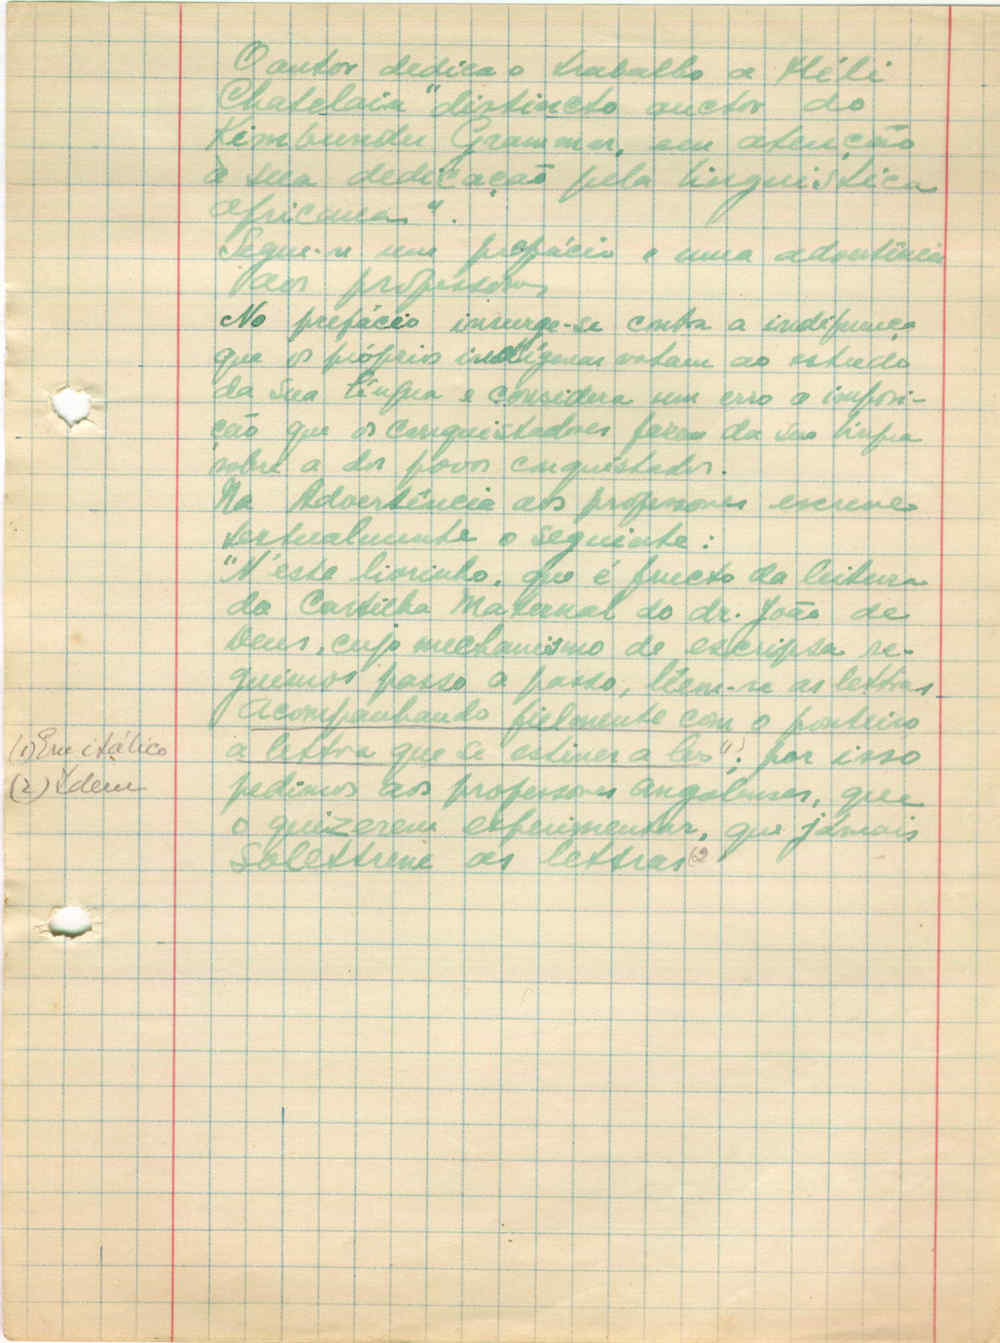 O autor dedica o trabalho a Héli
Chatelain "distincto auctor do
Kimbundu Grammar, em atenção
à sua dedicação pela linguistica
africana".
Segue-se um prefácio e uma advertência
aos professores
No prefácio insurge-se contra a indiferença
que os próprios indígenas votam ao estudo
da sua língua e considera um erro a imposi-
ção que os conquistadores fazem da sua língua
sobre a dos povos conquistados.
Na Advertência aos professores escreve
textualmente o seguinte:
"N'este livrinho, que é fructo da leitura
da Cartilha Maternal do dr. João de
Deus, cujo mechanismo de escripta se-
guimos passo a passo, lêem-se as lettras
acompanhando fielmente com o ponteiro
a lettra que se estiver a ler"; por isso
(1) Em itálico
pedimos aos professores angolenses, que
(2) Idem
o quizerem experimentar, que jámais
solettrem as lettras (2